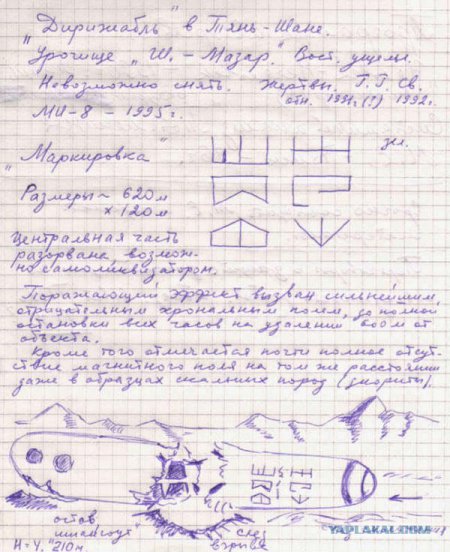 "Дирижабль" в Тянь-Шане.
Урочище "Ш.-Мазар". Вост. ущелье.
Невозможно снять. Жертвы. Г.Г. св.
отн. 1991г.(?) 1992г.
МИ-8 - 1995г.
"Маркировка"
Размеры ~ 620м
x 120м
Центральная часть
разорвана, возмож-
но самоликвидатором.
Поражающий эффект вызван сильнейшим,
отрицательным хрональным полем, до полной
остановки всех часов на удалении 800м от
объекта.
Кроме того отмечается почти полное отсут-
ствие магнитного поля на том же расстоянии
даже в образцах скальных пород (диориты).
остов
взрыва
210м
YAPLAKAL.COM